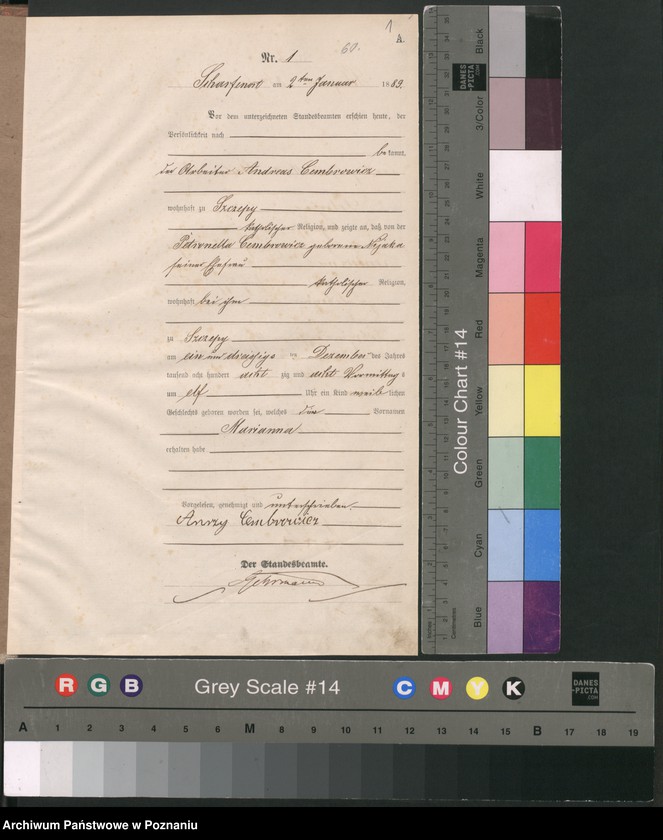 1
A.
60.
Nr. 1
Scharfenort am 2ten Januar 1889.
Vor dem unterzeichneten Standesbeamten erschien heute, der
Persönlichkeit nach
bekannt,
der Arbeiter Andreas Cembrowicz
wohnhaft zu Szczepy
katholischer Religion, und zeigte an, daß von der
Petronella Cembrowicz geborene Nyjaka
seiner Ehefrau
katholischer Religion,
wohnhaft bei ihm
zu Szczepy
am ein und dreißigs ten Dezember des Jahres
tausend acht hundert acht zig und acht Vormittags
um elf Uhr ein Kind weib lichen
Geschlechts geboren worden sei, welches den Vornamen
Marianna
erhalten habe
Vorgelesen, genehmigt und unterschrieben.
Cembrowicz
Der Standesbeamte.
R G B
Grey Scale #14
C M Y K
DANES
-PICTA
.COM
A 1 2 3 4 5 6 M 8 9 10 11 12 13 14 15 B 17 18 19
Colour Chart #14
Black
3/Color
White
Magenta
Red
Yellow
Green
Cyan
Blue
DANES
-PICTA
.COM
Inches
Centimetres
Archiwum Państwowe w Poznaniu